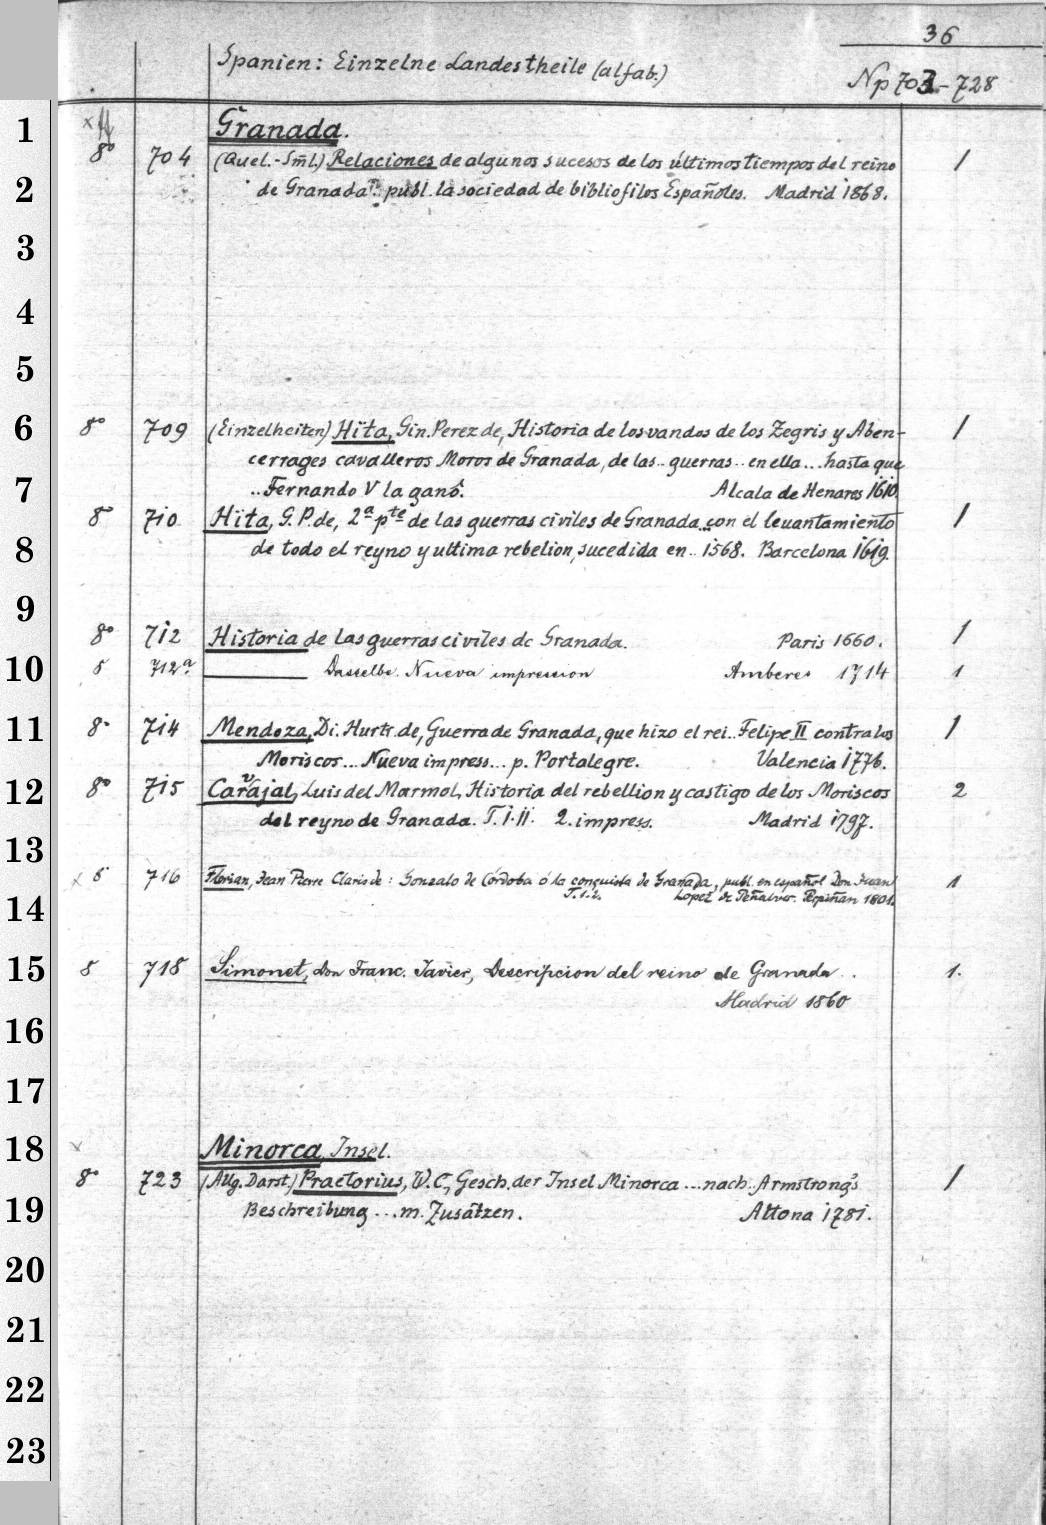 36
Spanien: Einzelne Landestheile (alfab.)
Np 703-728
1
Granada.
8° 704 (Quel.-Sml.) Relaciones de algunos sucesos de los últimos tiempos del reino 1
2
de Granada publ. la sociedad de bibliofilos Españoles. Madrid 1868.
3
4
5
6
8° 709 (Einzelheiten) Hita, Gin. Perez de, Historia de los vandos de los Zegris y Aben- 1
cerrages cavalleros Moros de Granada, de las .. guerras .. en ella ... hasta que
7
.. Fernando V la ganó. Alcala de Henares 1610.
8° 710 Hita, G. P. de, 2ª pte de las guerras civiles de Granada .. con el leuantamiento 1
8
de todo el reyno y ultima rebelion, sucedida en .. 1568. Barcelona 1619.
9
8° 712 Historia de las guerras civiles de Granada. Paris 1660. 1
10
8 712ª. Dasselbe. Nueva impression Amberes 1714 1
11
8° 714 Mendoza, Di. Hurt. de, Guerra de Granada, que hizo el rei .. Felipe II contra los 1
Moriscos ... Nueva impress... p. Portalegre. Valencia 1776.
12
8° 715 Carvajal, Luis del Marmol, Historia del rebellion y castigo de los Moriscos 2
del reyno de Granada. T. I. II. 2. impress. Madrid 1797.
13
x 8 716 Florian, Jean Pierre Claris de: Gonzalo de Córdoba ó la conquista de Granada, publ. en español Don Juan 1
T. 1. 2. Lopez de Peñalver. Perpiñan 1801.
14
15
8 718 Simonet, Don Franc. Javier, Descripcion del reino de Granada .. 1.
Madrid 1860
16
17
18
Minorca, Insel.
8° 723 (Allg. Darst.) Praetorius, W. C., Gesch. der Insel Minorca ... nach Armstrong's 1
19
Beschreibung ... m. Zusätzen. Altona 1781.
20
21
22
23